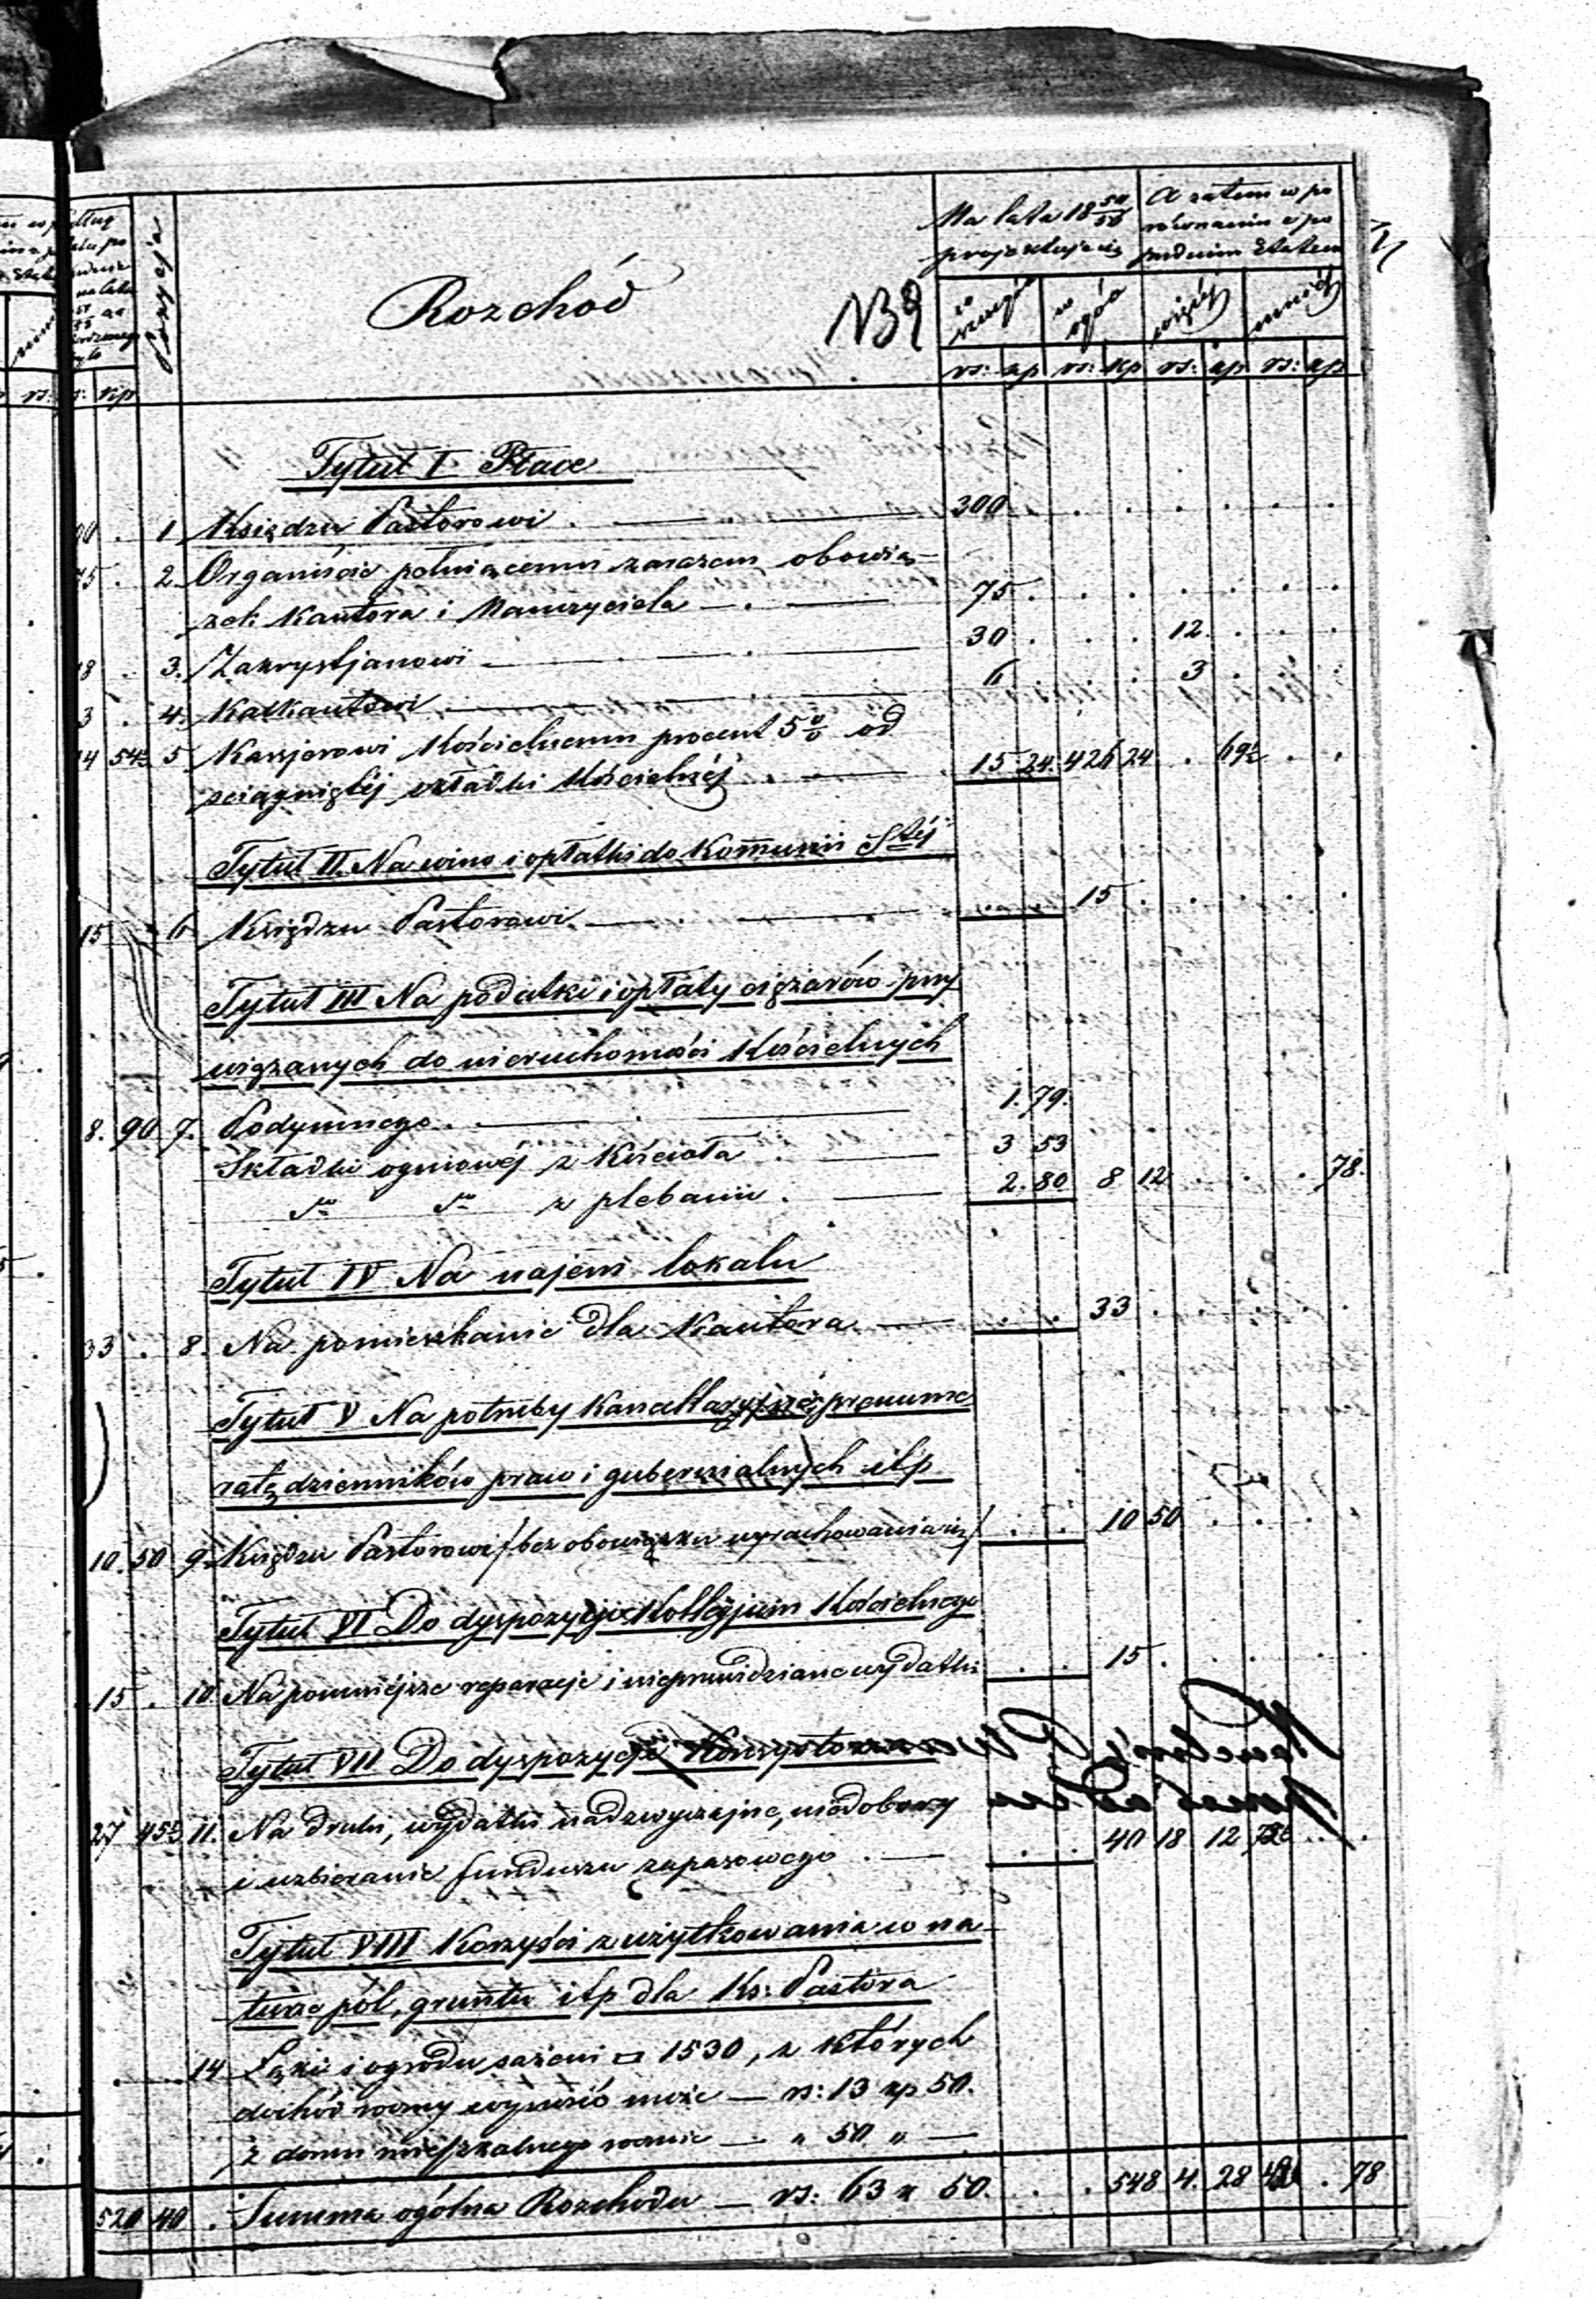 Pozycja
Rozchód
139
Na lata 18 54/56
projektuje się
A zatem w po
równaniu z po
przednim Etatem
w szczególe
w ogóle
więcéj
mniéj
rs: kp rs: kp rs: kp rs: kp
Tytuł I Płace
00 . 1 Księdzu Pastorowi . 300
75 . 2 Organiście pełniącemu zarazem obowią-
zek Kantora i Nauczyciela — . — 75
18 . 3. Zakrystjanowi — 30 . . . 12.
3 . 4. Kalkantowi — 6 . . . 3
14 54½ 5 Kassjerowi Kościelnemu procent 5 % od
ściągniętéj składki Kościelnéj . — 15 24. 426 24 . 69½
Tytuł II. Na wino i opłatki do Kommunii Stéj
15 . 6 Księdzu Pastorowi — 15
Tytuł III Na podatki i opłaty ciężarów przy
wiązanych do nieruchomości Kościelnych
8. 90 7. Podymnego . — 1. 79.
Składki ogniowéj z Kościoła . — 3 53
do do z plebanii . — 2. 80 8 12 . . . 78.
Tytuł IV Na najem lokalu
33 . 8. Na pomieszkanie dla Kantora — 33
Tytuł V Na potrzeby Kancellaryjne, prenume
ratę dzienników praw i gubernialnych itp
10. 50 9. Księdzu Pastorowi /bez obowiązku wyrachowania się/ . . 10 50
Tytuł VI Do dyspozycji Kollegjum Kościelnego
15 . 10 Na pomniéjsze reparacje i nieprzewidziane wydatki . . 15
Tytuł VII Do dyspozycji Konsystorza
27 45½ 11. Na druki, wydatki nadzwyczajne, niedobory
i uzbieranie funduszu zapasowego . — 40 18 12 72½
Tytuł VIII Korzyści z użytkowania w na-
turze pól, gruntu itp dla Ks: Pastora
14 Łąki i ogrodu sążeni □ 1530, z których
dochód roczny wynosić może — rs: 13 kp 50.
z domu mieszkalnego rocznie — " 50 " —
520 40 . Summa ogólna Rozchodu — rs: 63 k 50. . . 548 4. 28 . 78